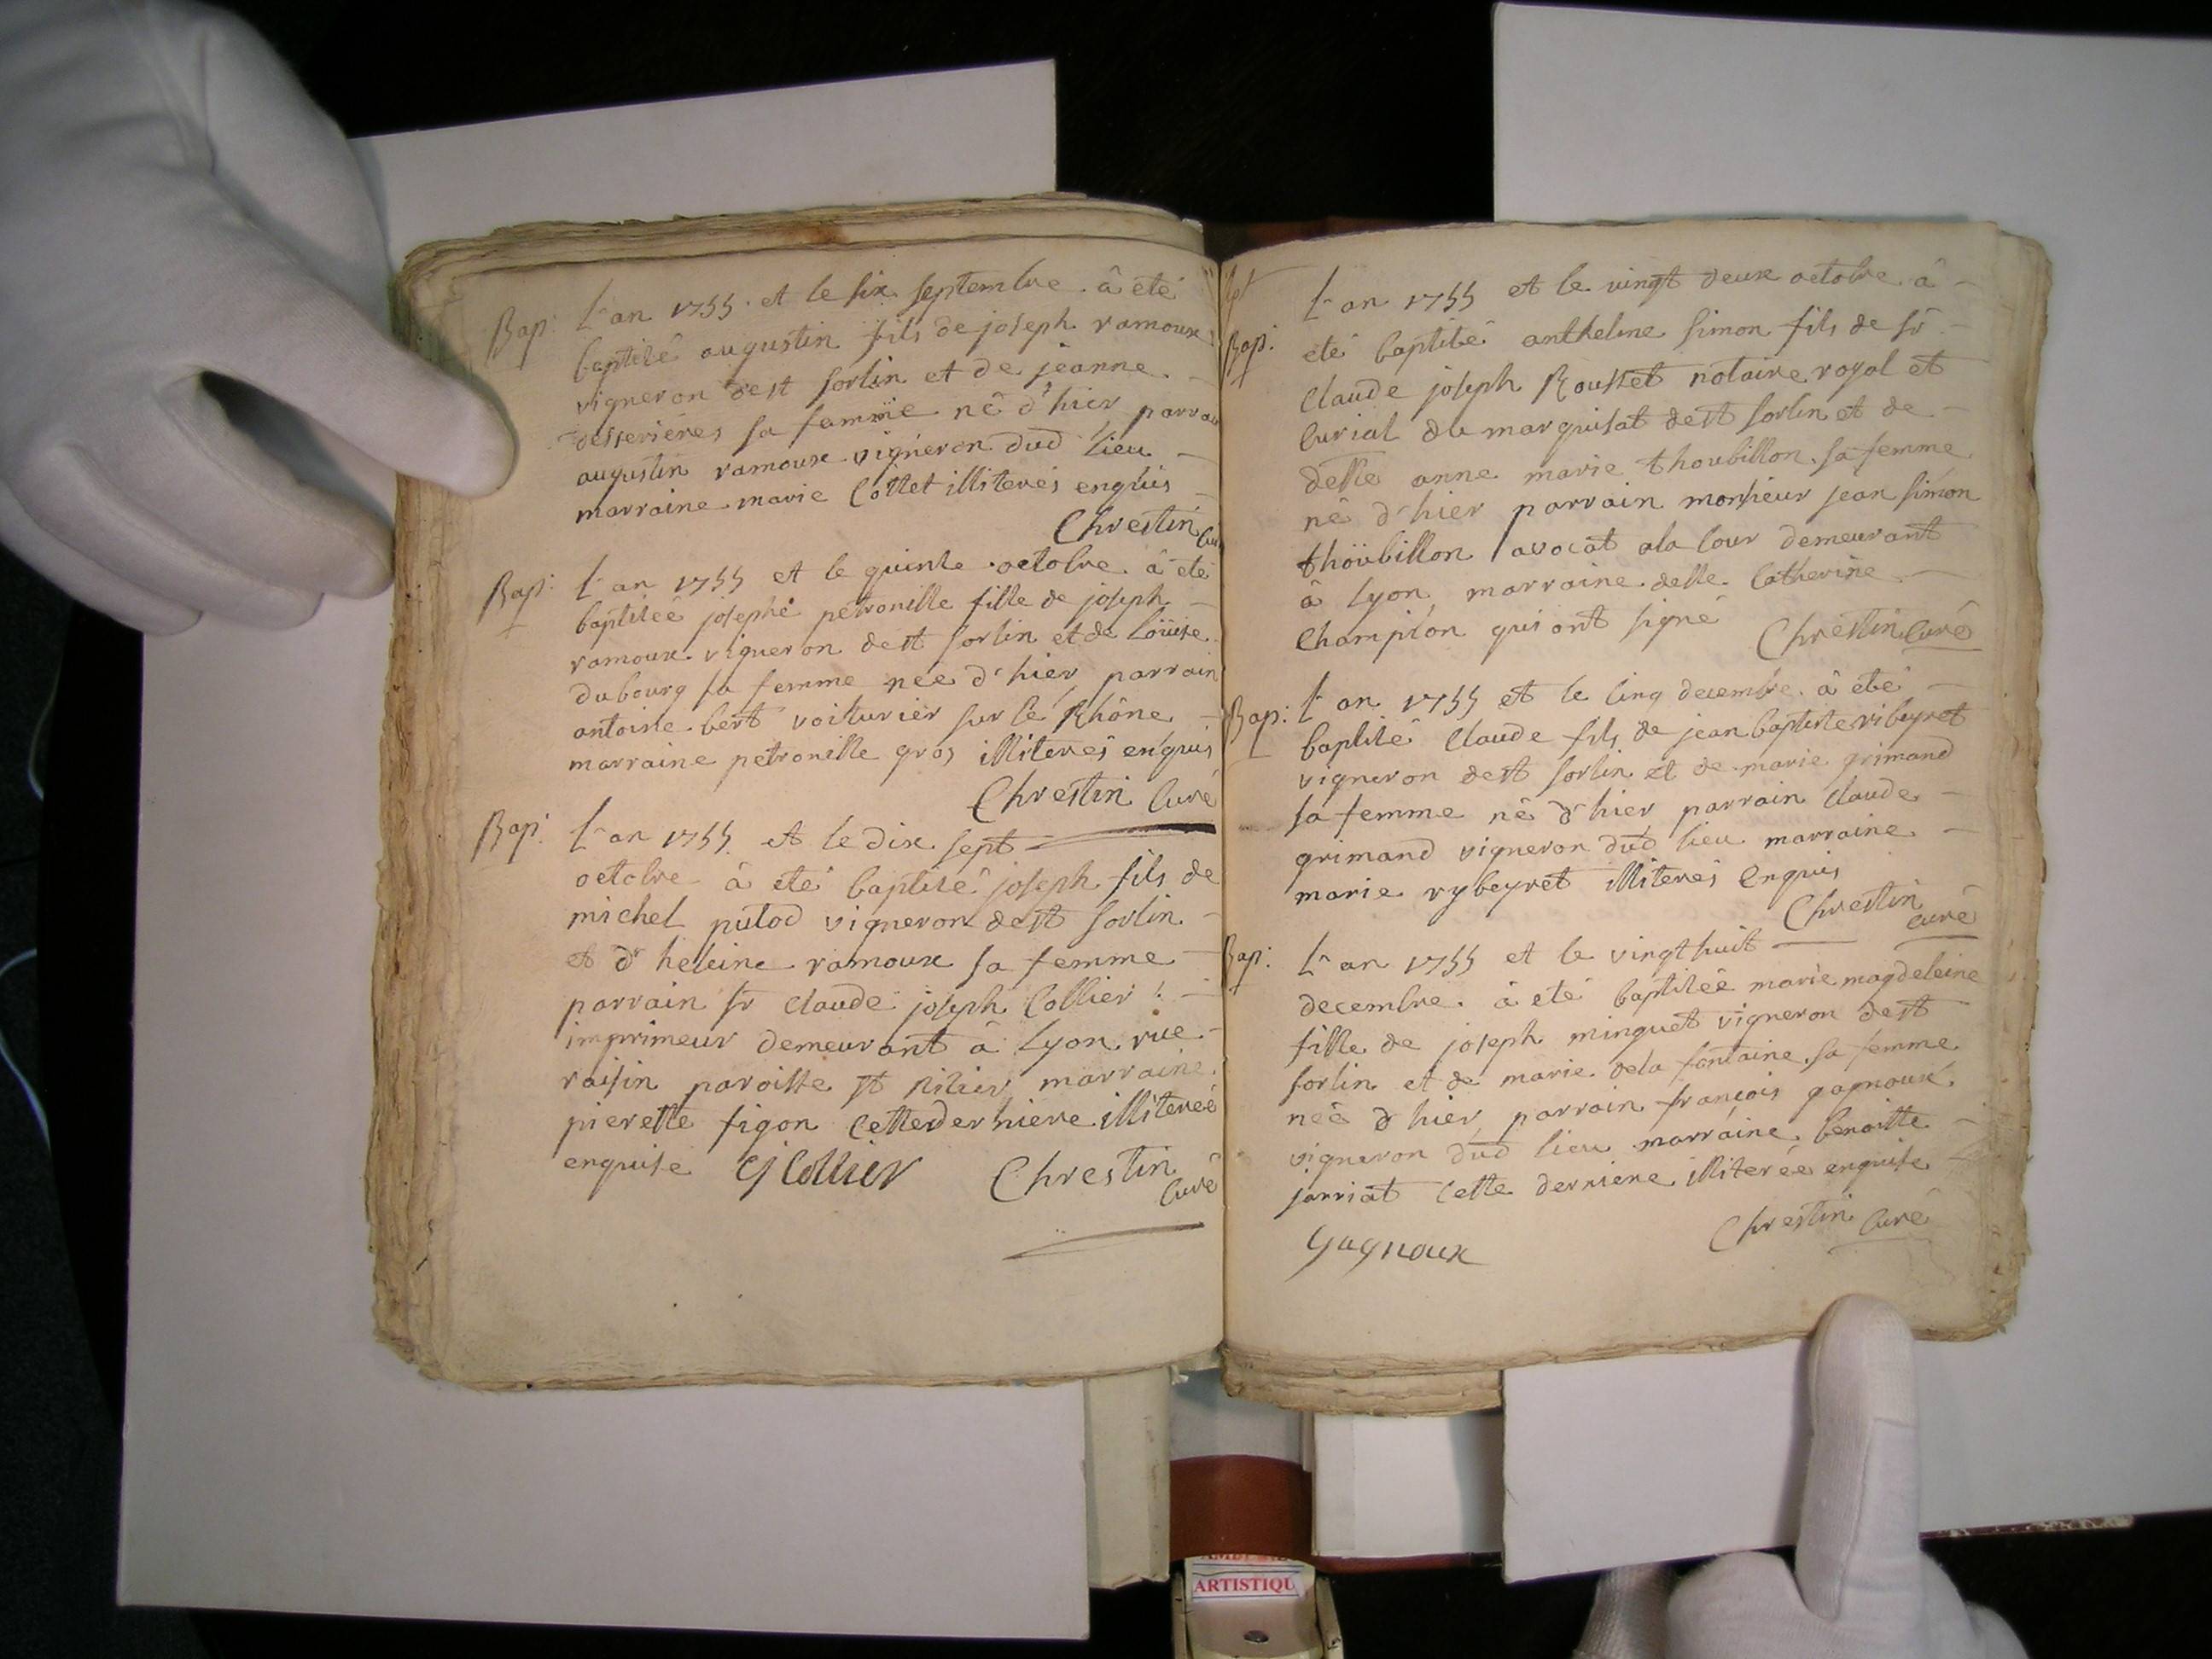 Bap: L'an 1755 et le six septembre a eté
baptisé augustin fils de joseph ramoux
vigneron de st sorlin et de jeanne
desserieres sa femme né d'hier parrain
augustin ramoux vigneron dud lieu
marraine marie Collet illiterés enquis
Chrestin Curé
Bap: L'an 1755 et le quinze octobre a eté
baptisée josephe petronille fille de joseph
ramoux vigneron de st sorlin et de Loüise
dubourg sa femme née d'hier parrain
antoine bert voiturier sur le Rhône
marraine petronille gros illiterés enquis
Chrestin Curé
Bap: L'an 1755 et le dix sept
octobre a eté baptisé joseph fils de
michel pulod vigneron de st sorlin
et d' heleine ramoux sa femme
parrain sr claude joseph Collier
imprimeur demeurant â Lyon rue
raisin paroisse st nizier marraine
pierette figon cette derniere illiterée
enquise CJ Collier Chrestin
Curé
L'an 1755 et le vingt deux octobre â
Bap: eté baptisé anthelme simon fils de sr
Claude joseph Rousset notaire royal et
Curial du marquisat de st sorlin et de
delle anne marie thoubillon sa femme
né d'hier parrain monsieur jean simon
thoübillon avocat a la Cour demeurant
â Lyon, marraine delle Catherine
Champion qui ont signé Chrestin Curé
Bap: L'an 1755 et le Cinq decembre â eté
baptisé Claude fils de jean baptiste ribeyret
vigneron de st sorlin et de marie grimand
sa femme né d'hier parrain Claude
grimand vigneron dud lieu marraine
marie rybeyret illiterés Enquis
Chrestin
curé
Bap: L'an 1755 et le vingt huit
decembre a eté baptisée marie magdeleine
fille de joseph minguet vigneron de st
sorlin et de marie dela fontaine sa femme
née d'hier, parrain françois gagnoux
vigneron dud lieu marraine benoitte
jarriat Cette derniere illiterée enquise
Chrestin Curé
Gagnoux
ARTISTIQU